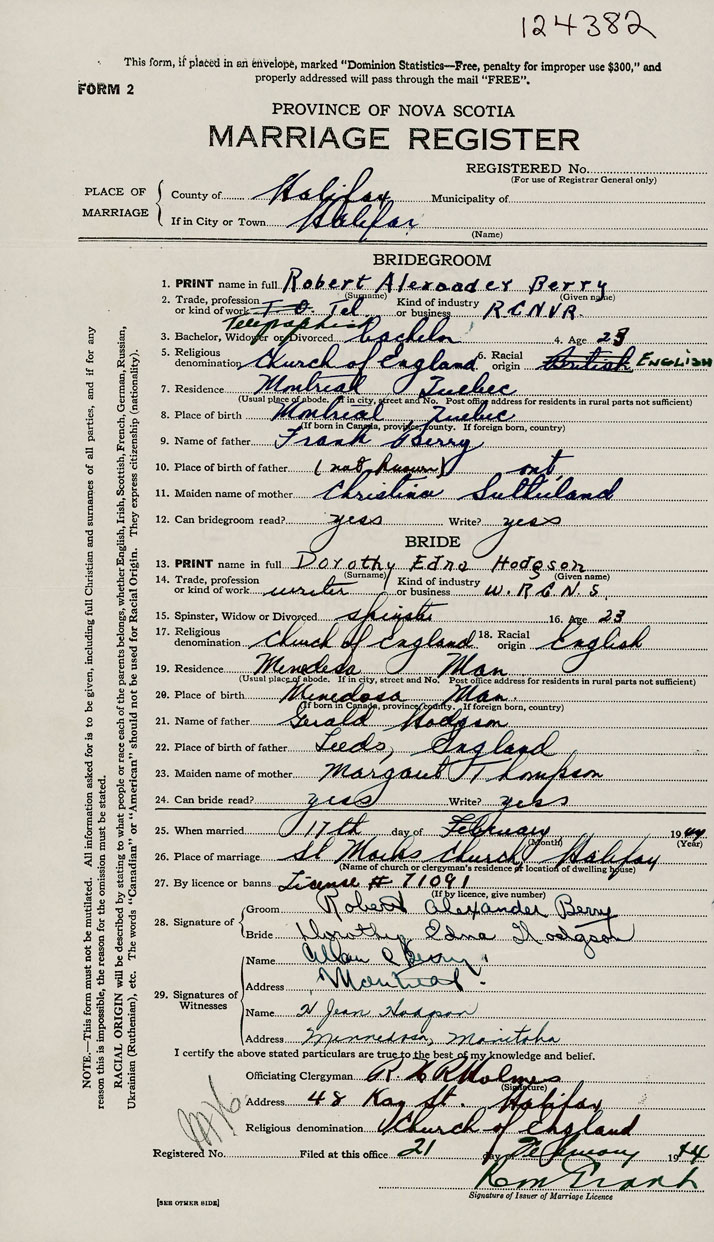 124382
This form, if placed in an envelope, marked "Dominion Statistics—Free, penalty for improper use $300," and
properly addressed will pass through the mail "FREE".
FORM 2
PROVINCE OF NOVA SCOTIA
MARRIAGE REGISTER
REGISTERED No.
(For use of Registrar General only)
PLACE OF MARRIAGE
County of Halifax Municipality of
If in City or Town Halifax
(Name)
BRIDEGROOM
1. PRINT name in full Robert Alexander Berry
(Surname) (Given name)
2. Trade, profession or kind of work T.O. Tel Telegraphist Kind of industry or business R.C.N.V.R.
3. Bachelor, Widower or Divorced bachelor 4. Age 23
5. Religious denomination Church of England 6. Racial origin British ENGLISH
7. Residence Montreal Quebec
(Usual place of abode. If in city, street and No. Post office address for residents in rural parts not sufficient)
8. Place of birth Montreal Quebec
(If born in Canada, province, county. If foreign born, country)
9. Name of father Frank Berry
10. Place of birth of father (not known) ont
11. Maiden name of mother Christina Sutherland
12. Can bridegroom read? yess Write? yess
BRIDE
13. PRINT name in full Dorothy Edna Hodgson
(Surname) (Given name)
14. Trade, profession or kind of work writer Kind of industry or business W.R.C.N.S.
15. Spinster, Widow or Divorced spinster 16. Age 23
17. Religious denomination Church of England 18. Racial origin English
19. Residence Minedosa Man
(Usual place of abode. If in city, street and No. Post office address for residents in rural parts not sufficient)
20. Place of birth Minedosa Man.
(If born in Canada, province, county. If foreign born, country)
21. Name of father Gerald Hodgson
22. Place of birth of father Leeds, England
23. Maiden name of mother Margaret Thompson
24. Can bride read? yess Write? yess
25. When married 17th day of February 1944
(Month) (Year)
26. Place of marriage St Marks Church, Halifax
(Name of church or clergyman's residence or location of dwelling house)
27. By licence or banns License # 71091
(If by licence, give number)
28. Signature of
Groom Robert Alexander Berry
Bride Dorothy Edna Hodgson
29. Signatures of Witnesses
Name Allan Berry
Address Montreal.
Name Jean Hodgson
Address Minnedosa, Manitoba
I certify the above stated particulars are true to the best of my knowledge and belief.
Officiating Clergyman Holmes
(Signature)
Address 48 Kay St. Halifax
Religious denomination Church of England
Registered No. Filed at this office 21 day February 1944
Grant
Signature of Issuer of Marriage Licence
[SEE OTHER SIDE]
NOTE.—This form must not be mutilated. All information asked for is to be given, including full Christian and surnames of all parties, and if for any
reason this is impossible, the reason for the omission must be stated.
RACIAL ORIGIN will be described by stating to what people or race each of the parents belongs, whether English, Irish, Scottish, French, German, Russian,
Ukrainian (Ruthenian), etc. The words "Canadian" or "American" should not be used for Racial Origin. They express citizenship (nationality).